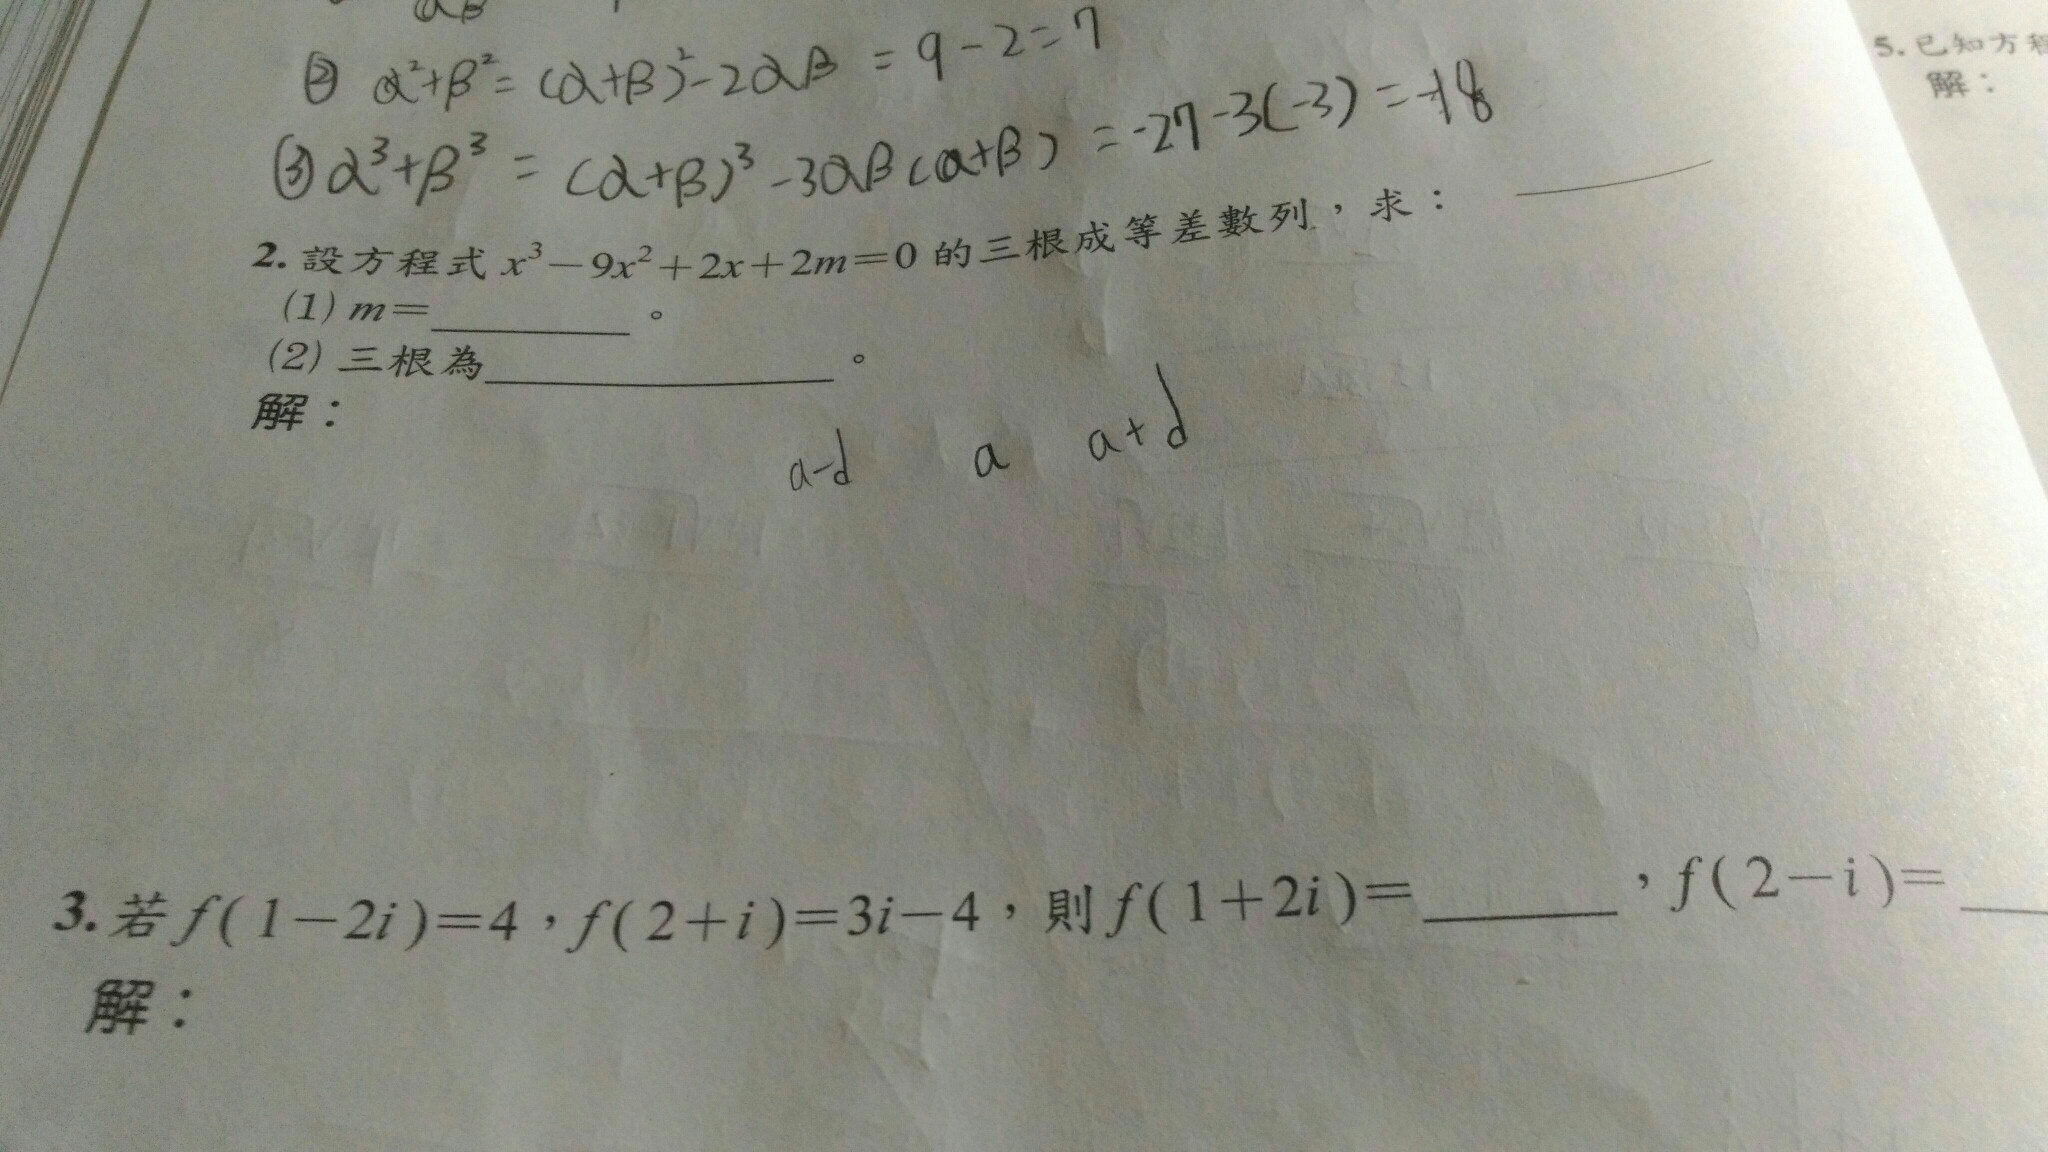 αβ
② α²+β²=(α+β)²-2αβ = 9-2=7
③ α³+β³ = (α+β)³-3αβ(α+β) = -27-3(-3)=-18
2. 設方程式 x³-9x²+2x+2m=0 的三根成等差數列,求:
(1) m=________。
(2) 三根為________。
解:
a-d a a+d
3. 若 f(1-2i)=4,f(2+i)=3i-4,則 f(1+2i)=________,f(2-i)=____
解:
5. 已知方程
解: